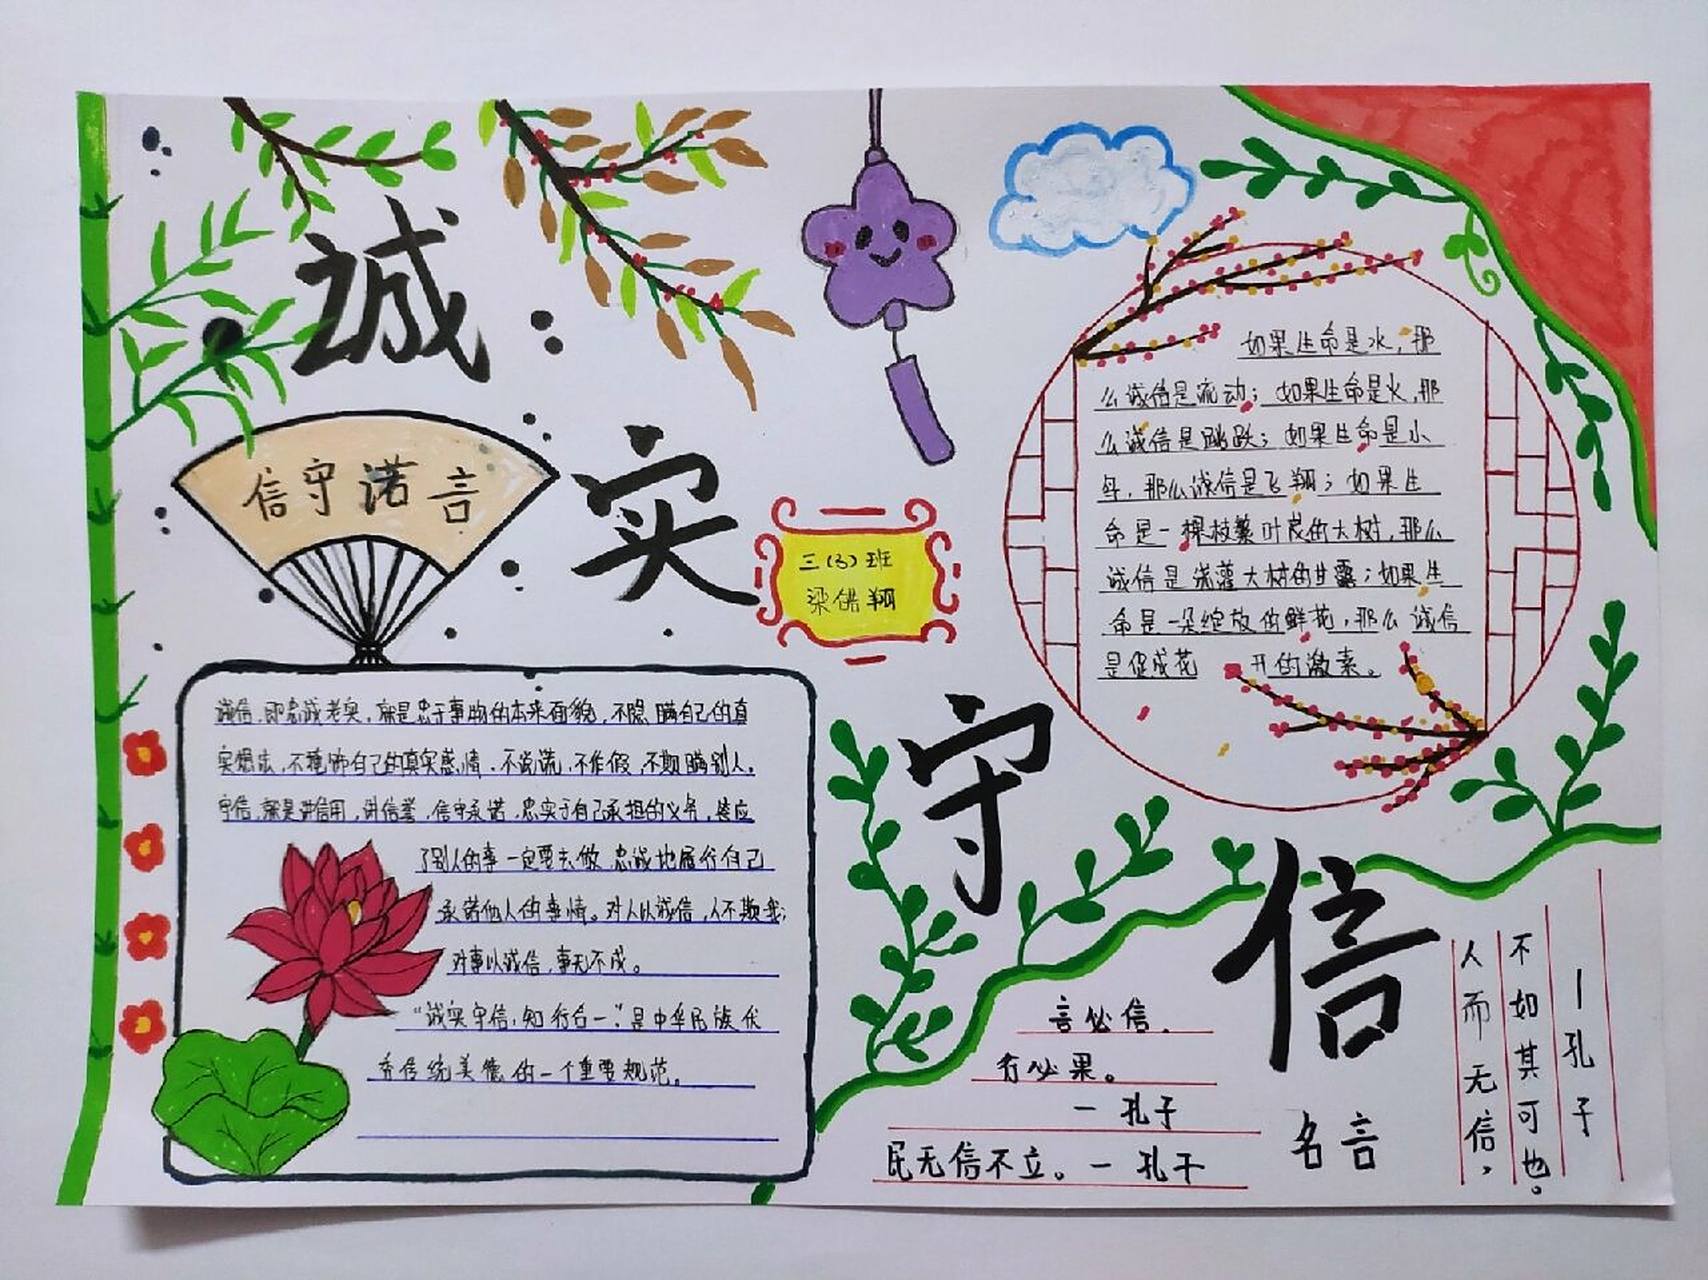 誠
实
守
信
信守诺言
三(3)班
梁 翔
诚信,即忠诚老实,就是忠于事物的本来面貌,不隐瞒自己的真
实想法,不掩饰自己的真实感情,不说谎,不作假,不欺瞒别人。
守信,就是讲信用,讲信誉,信守承诺,忠实于自己承担的义务,答应
了别人的事一定要去做,忠诚地履行自己
承诺他人的事情。对人以诚信,人不欺我;
对事以诚信,事无不成。
“诚实守信,知行合一”是中华民族优
秀传统美德的一个重要规范。
如果生命是水,那
么诚信是流动;如果生命是火,那
么诚信是跳跃;如果生命是小
鸟,那么诚信是飞翔;如果生
命是一棵枝繁叶茂的大树,那么
诚信是浇灌大树的甘露;如果生
命是一朵绽放的鲜花,那么诚信
是促成花开的激素。
言必信,
行必果。
一孔子
民无信不立。一孔子
名言
人而无信,
不如其可也。
一孔子